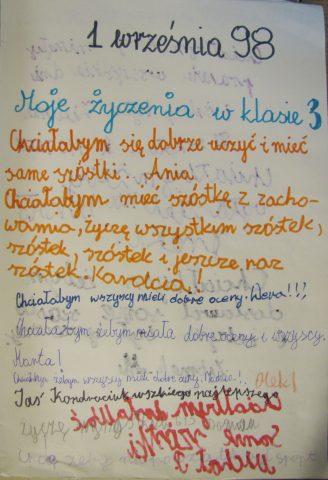 1 września 98
Moje życzenia w klasie 3
Chciałabym się dobrze uczyć i mieć
same szóstki. Ania.
Chciałabym mieć szóstkę z zacho-
wania, życzę wszystkim szóstek,
szóstek, szóstek i jeszcze raz
szóstek. Karolcia!
Chciałabym wszyscy mieli dobre oceny. Wera!!!
chciałabym żebym miała dobre oceny i wszyscy.
Marta!
Chciałabym żebym wszyscy mieli dobre oceny. Madzia!
Olek!
Jaś Kondraciuk wszystkiego najlepszego
Chciałbym dostawać
same szóstki
Michał P
życzę